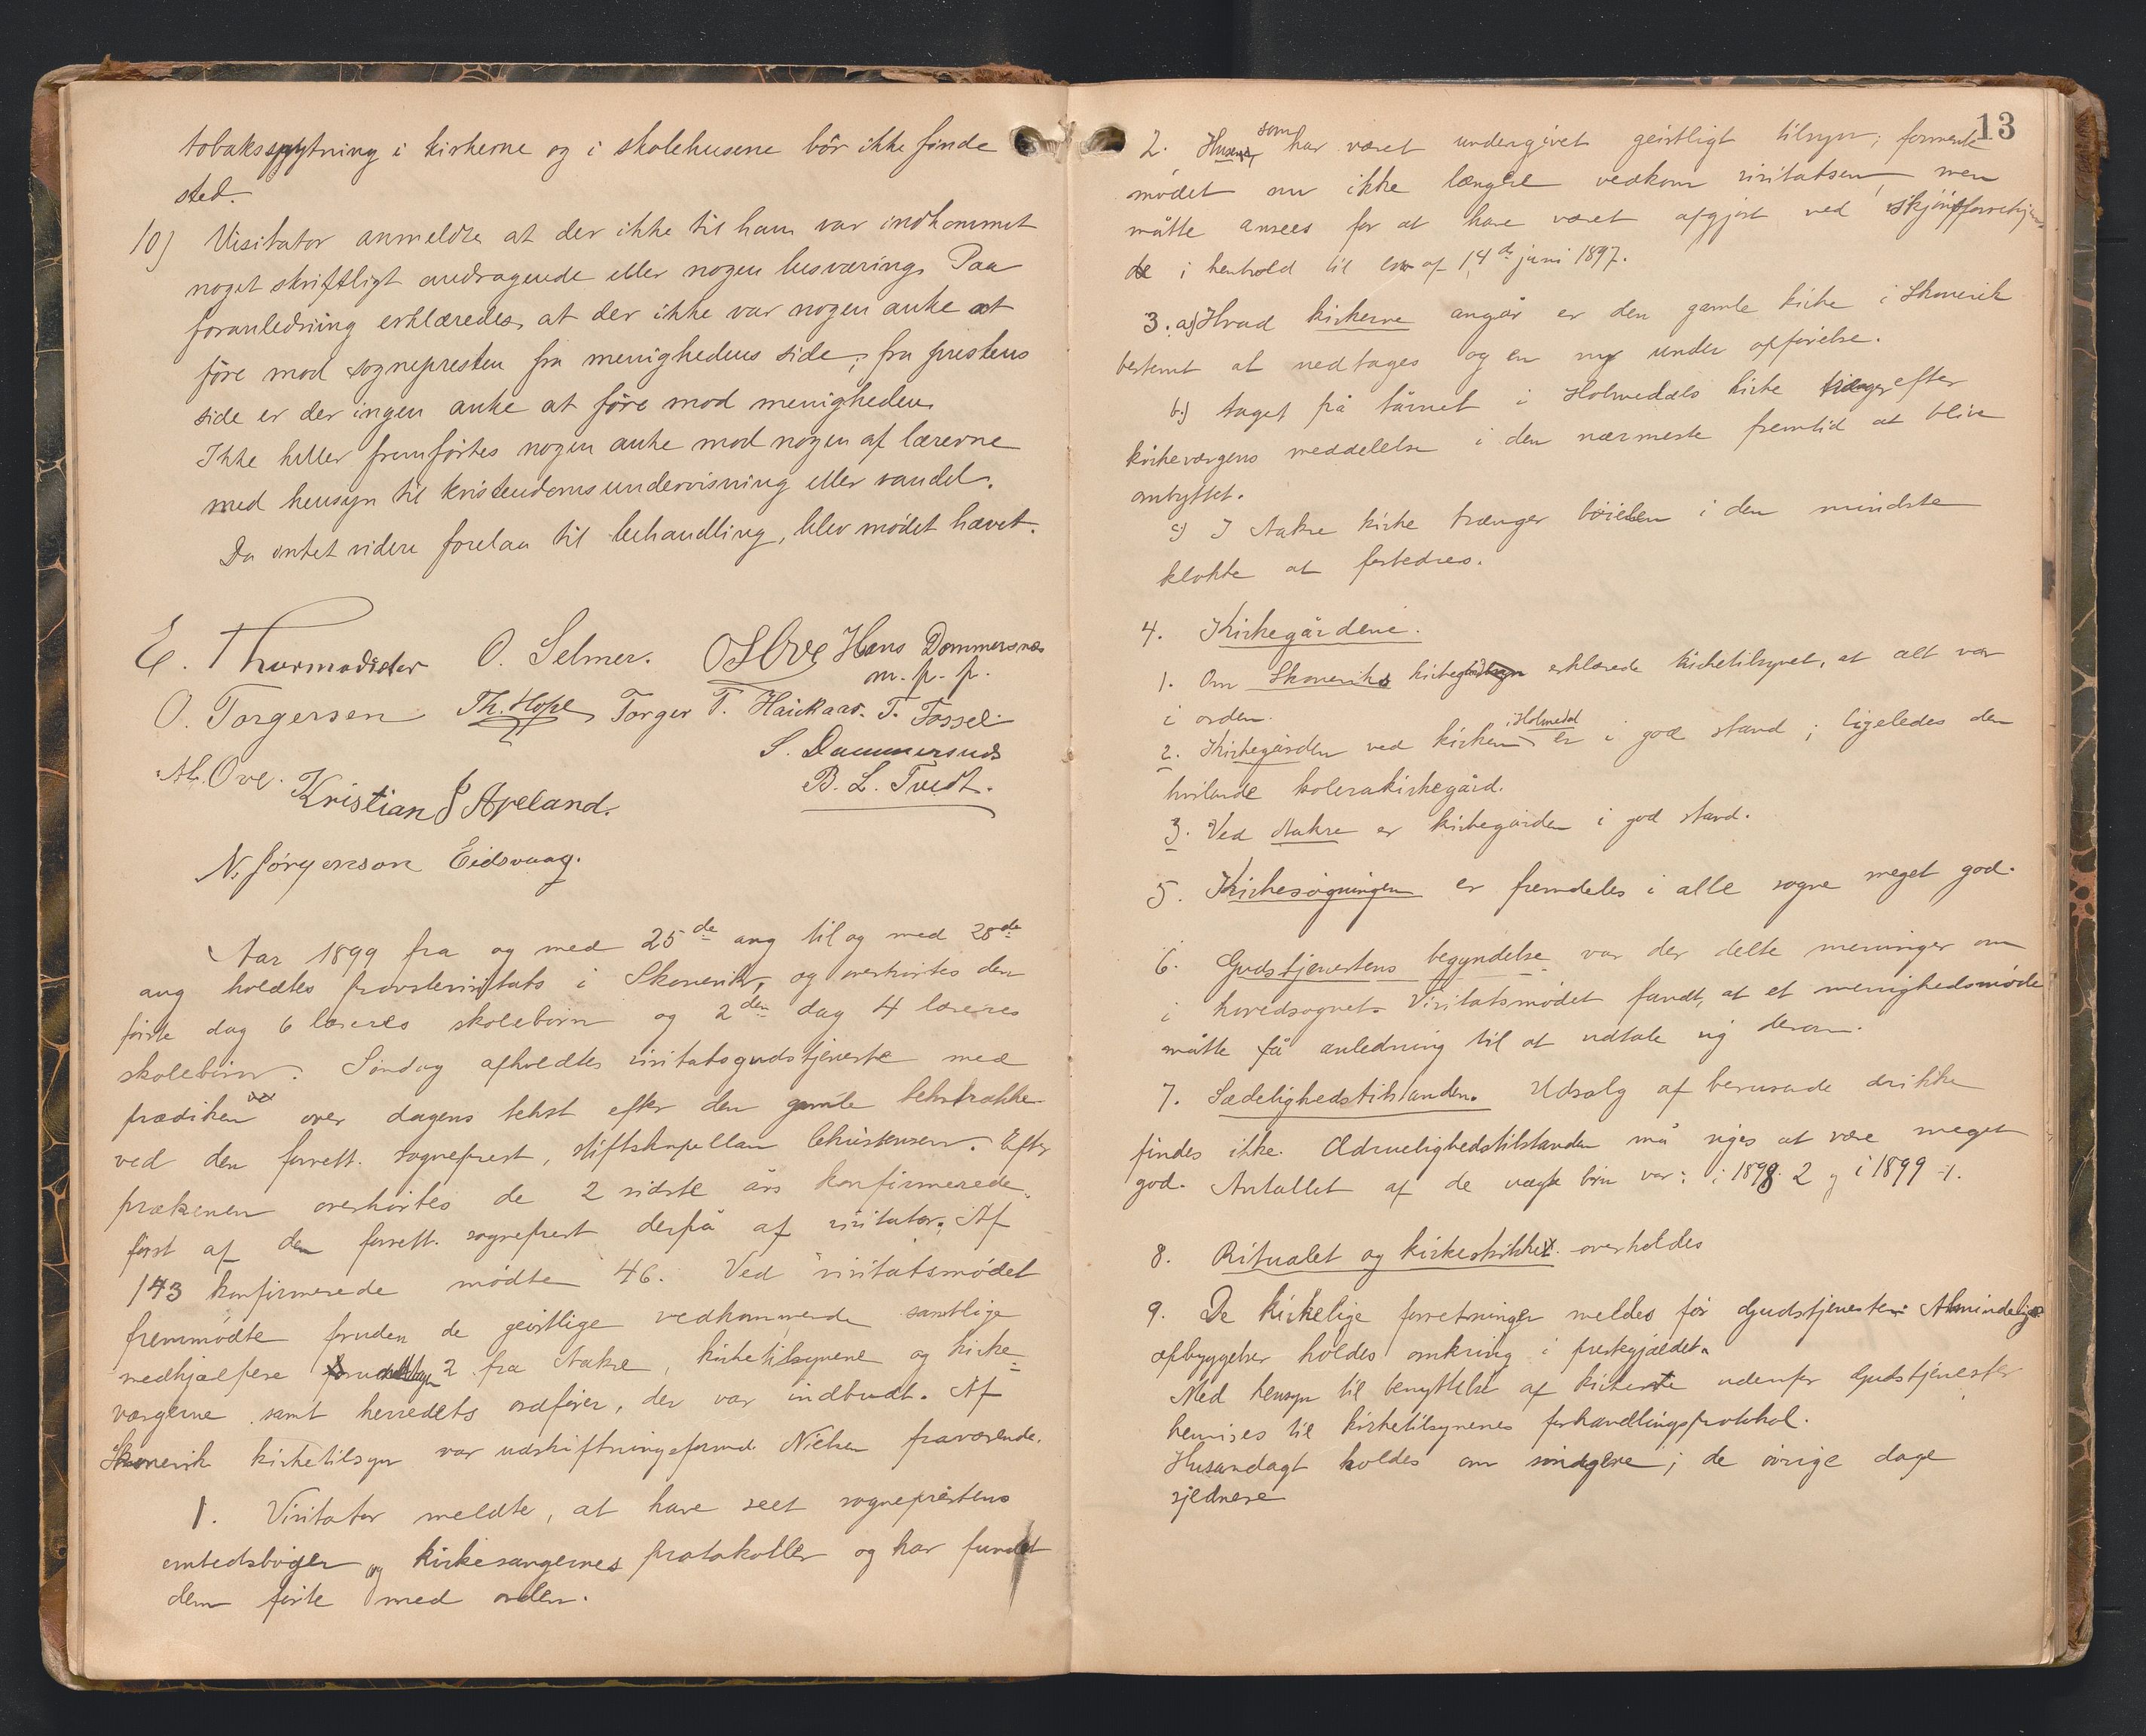 tobaksspytning i kirkerne og i skolehusene bör ikke finde
sted.
10) Visitator anmeldte at der ikke til ham var indkommet
noget skriftligt andragende eller nogen besværing. Paa
foranledning erklæredes, at der ikke var nogen anke at
före mod sognepresten fra menighedens side; fra prestens
side er der ingen anke at före mod menigheden.
Ikke heller fremförtes nogen anke mod nogen af lærerne
med hensyn til kristendomsundervisning eller vandel.
Da intet videre forelaa til behandling, blev mödet hævet.
E. Thormodsæter O. Selmer. O S Ove Hans Dommersnes
m. p. p.
O. Torgersen Th. Hope Torger T. Haickaas. T. Fossel.
S. Dammersnes
Al. Ove. Kristian J Apeland. B. L. Tvedt.
N. Jörgenson Eidsvaag.
Aar 1899 fra og med 25de aug til og med 28de
aug holdtes provstevisitats i Skonevik, og overhörtes den
förste dag 6 læreres skolebörn og 2den dag 4 læreres
skolebörn. Söndag afholdtes visitatsgudstjeneste med
prædiken over dagens tekst efter den gamle tekstrække
ved den forrett. sogneprest, stiftskapellan Christensen. Efter
prækenen overhörtes de 2 sidste års konfirmerede
först af den forrett. sogneprest derpå af visitator. Af
143 konfirmerede mödte 46. Ved visitatsmödet
fremmödte foruden de geistlige vedkommende samtlige
medhjælpere 2 fra Aakre, kirketilsynene og kirke-
værgerne samt herredets ordförer, der var indbudt. Af
Skonevik kirketilsyn var udskiftningsformd. Nielsen fraværende.
1. Visitator meldte, at have seet sogneprestens
embedsböger og kirkesangernes protokoller og har fundet
dem förte med orden.
13
2. Husene som har været undergivet geistligt tilsyn, formente
mödet nu ikke længere vedkom visitatsen, men
måtte ansees for at have været afgjort ved
de i henhold til lov af 14de juni 1897.
3. a) Hvad kirkerne angår er den gamle kirke i Skonevik
bestemt at nedtages og en ny under opförelse.
b) taget på tårnet i Holmedals kirke trænger efter
kirkeværgens meddelelse i den nærmeste fremtid at blive
ombyttet.
c) I Aakre kirke trænger böielen i den mindste
klokke at forbedres.
4. Kirkegårdene.
1. Om Skoneviks erklærede kirketilsynet, at alt var
i orden.
2. Kirkegården ved kirken Holmedal er i god stand; ligeledes den
hvilende kolerakirkegård.
3. Ved Aakre er kirkegården i god stand.
5. Kirkesögningen er fremdeles i alle sogne meget god.
6. Gudstjenestens begyndelse var der delte meninger om
i hovedsognet. Visitatsmödet fandt, at et menighedsmöde
måtte få anledning til at udtale sig derom.
7. Sædelighedstilstanden. Udsalg af berusende drikke
findes ikke. Ædruelighedstilstanden må siges at være meget
god. Antallet af de uægte börn var: i 1898 2 og i 1899 1.
8. Ritualet og kirkeskikke overholdes
9. De kirkelige forretninger meldes för Gudstjenesten. Almindelige
opbyggelser holdes omkring i prestegjældet.
Med hensyn til benyttelse af kirkerne udenfor Gudstjenester
henvises til kirketilsynenes forhandlingsprotokol.
Husandagt holdes om söndagene; de övrige dage
sjeldnere